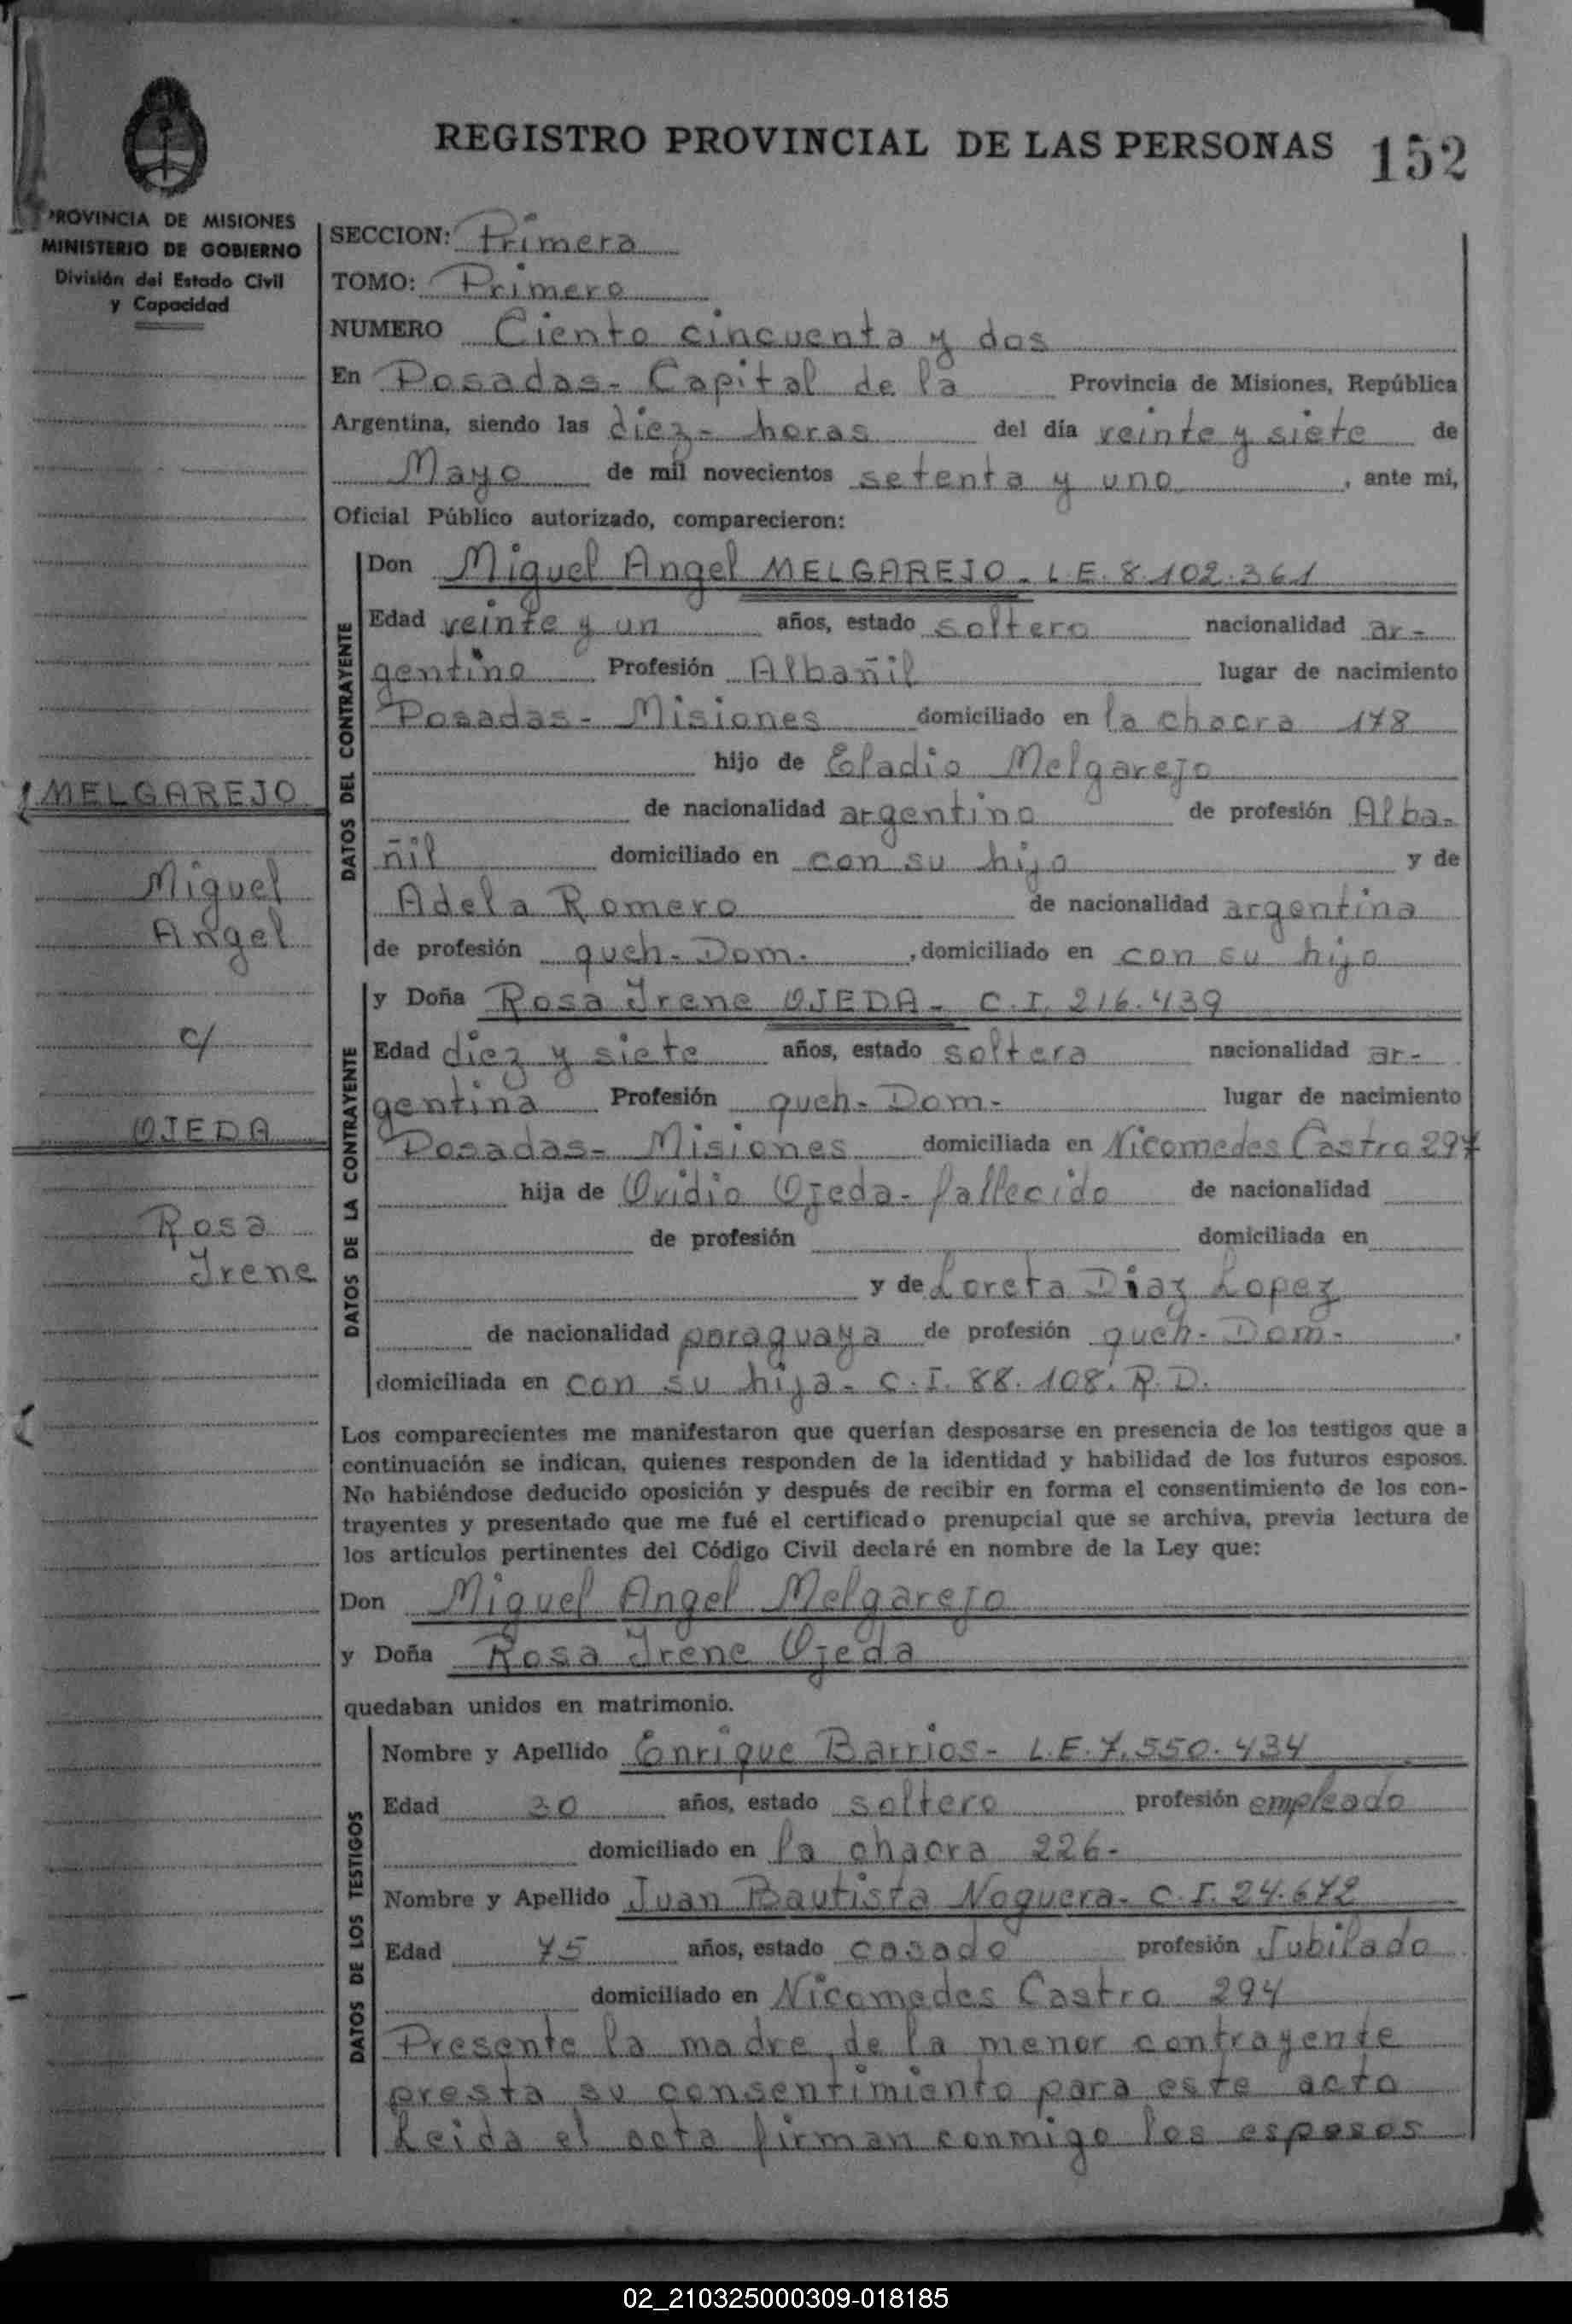 REGISTRO PROVINCIAL DE LAS PERSONAS 152
PROVINCIA DE MISIONES
MINISTERIO DE GOBIERNO
División del Estado Civil
y Capacidad
MELGAREJO
Miguel
Angel
c/
OJEDA
Rosa
Irene
SECCION: Primera
TOMO: Primero
NUMERO Ciento cincuenta y dos
En Posadas - Capital de la Provincia de Misiones, República
Argentina, siendo las diez - horas del día veinte y siete de
Mayo de mil novecientos setenta y uno, ante mi,
Oficial Público autorizado, comparecieron:
DATOS DEL CONTRAYENTE
Don Miguel Angel MELGAREJO - L.E. 8.102.361
Edad veinte y un años, estado soltero nacionalidad ar-
gentino Profesión Albañil lugar de nacimiento
Posadas - Misiones domiciliado en la chacra 178
hijo de Eladio Melgarejo
de nacionalidad argentino de profesión Alba-
ñil domiciliado en con su hijo y de
Adela Romero de nacionalidad argentina
de profesión queh- Dom. , domiciliado en con su hijo
DATOS DE LA CONTRAYENTE
y Doña Rosa Irene OJEDA - C.I. 216.439
Edad diez y siete años, estado soltera nacionalidad ar-
gentina Profesión queh- Dom- lugar de nacimiento
Posadas - Misiones domiciliada en Nicomedes Castro 297
hija de Ovidio Ojeda - fallecido de nacionalidad
de profesión domiciliada en
y de Loreta Diaz Lopez
de nacionalidad paraguaya de profesión queh- Dom- .
domiciliada en con su hija - C.I. 88.108. R.D.
Los comparecientes me manifestaron que querían desposarse en presencia de los testigos que a
continuación se indican, quienes responden de la identidad y habilidad de los futuros esposos.
No habiéndose deducido oposición y después de recibir en forma el consentimiento de los con-
trayentes y presentado que me fué el certificado prenupcial que se archiva, previa lectura de
los artículos pertinentes del Código Civil declaré en nombre de la Ley que:
Don Miguel Angel Melgarejo
y Doña Rosa Irene Ojeda
quedaban unidos en matrimonio.
DATOS DE LOS TESTIGOS
Nombre y Apellido Enrique Barrios - L.E. 7.550.434
Edad 30 años, estado soltero profesión empleado
domiciliado en la chacra 226-
Nombre y Apellido Juan Bautista Noguera - C.I. 24.672
Edad 75 años, estado casado profesión Jubilado
domiciliado en Nicomedes Castro 294
Presente la madre de la menor contrayente
presta su consentimiento para este acto
Leida el acta firman conmigo los esposos
02_210325000309-018185